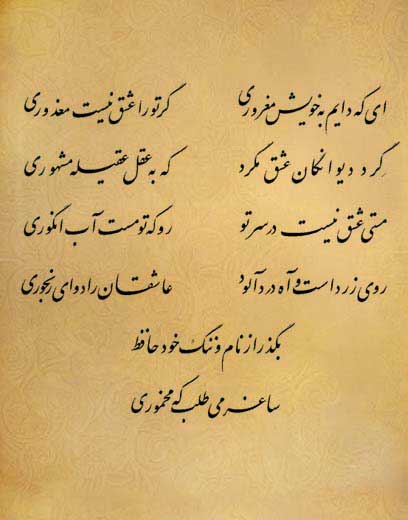 ای که دایم به خویش مغروری گر تو را عشق نیست معذوری
گرد دیوانگان عشق مگرد که به عقل عقیله مشهوری
مستی عشق نیست در سر تو رو که تو مست آب انگوری
روی زرد است و آه دردآلود عاشقان را دوای رنجوری
بگذر از نام و ننگ خود حافظ
ساغر می طلب که مخموری